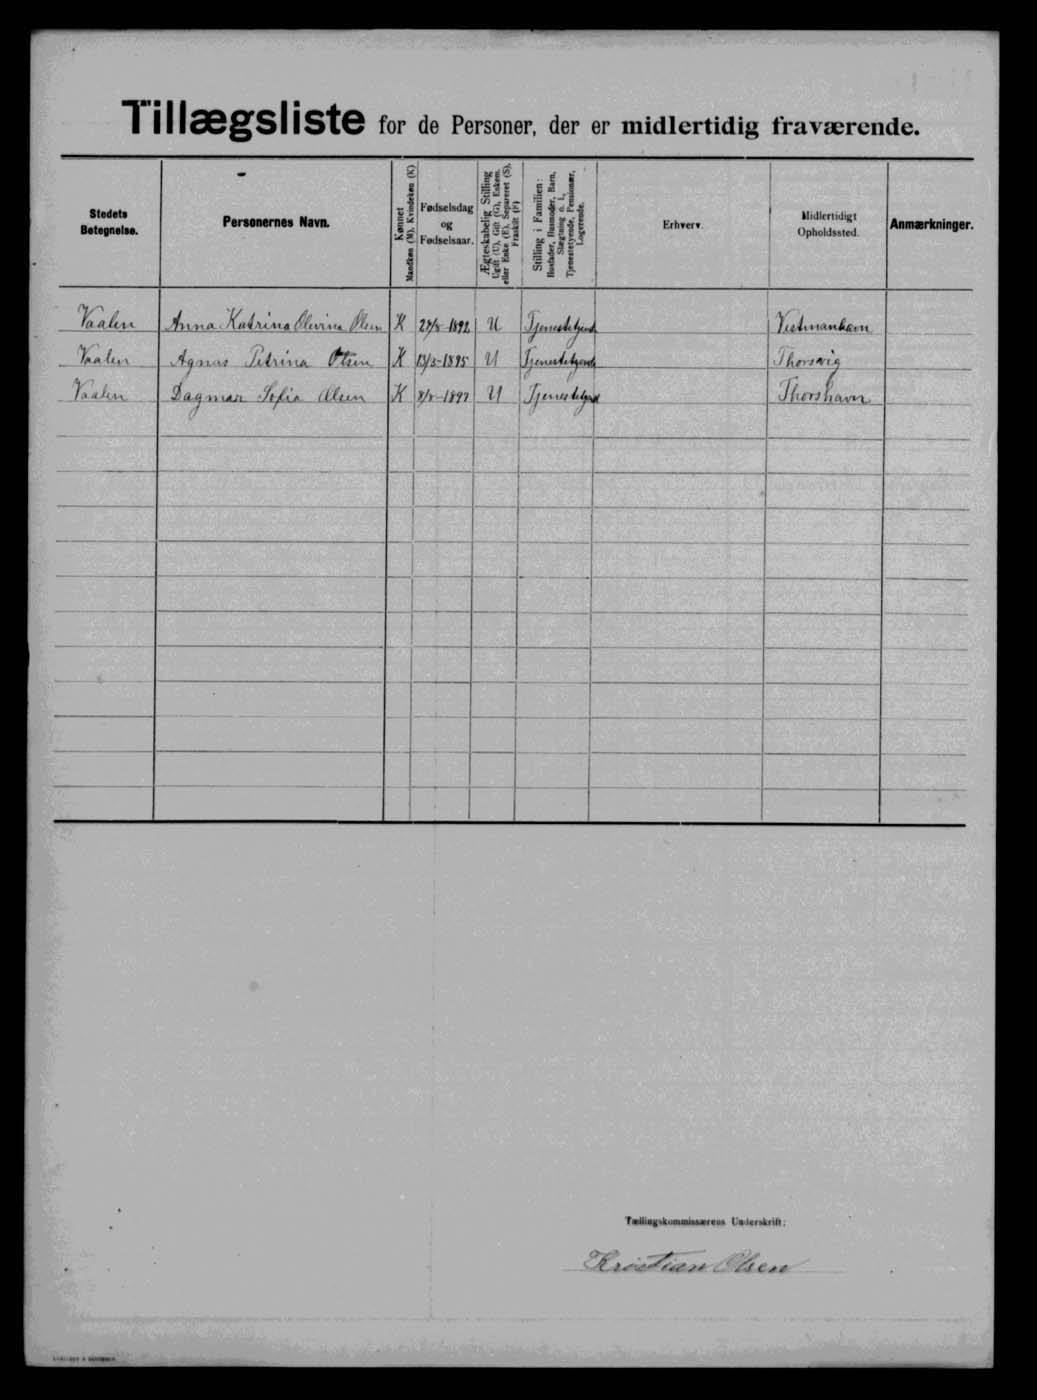 Tillægsliste for de Personer, der er midlertidig fraværende.
Stedets Betegnelse.
Personernes Navn.
Kønnet
Mandkøn (M), Kvindekøn (K)
Fødselsdag og Fødselsaar.
Ægteskabelig Stilling
Ugift (U), Gift (G), Enkem. eller Enke (E), Separeret (S), Fraskilt (F)
Stilling i Familien:
Husfader, Husmoder, Barn, Slægtning o. l., Tjenestetyende, Pensionær, Logerende.
Erhverv.
Midlertidigt Opholdssted.
Anmærkninger.
Vaalen Anna Katrina Olevina Olsen K 1892 U Tjenestetyende Vestmanhavn
Vaalen Agnas Petrina Olsen K 13/3-1895 U Tjenestetyende Thorsvig
Vaalen Dagmar Sofia Olsen K U Tjenestetyend Thorshavn
Tællingskommissærens Underskrift:
Kristian Olsen